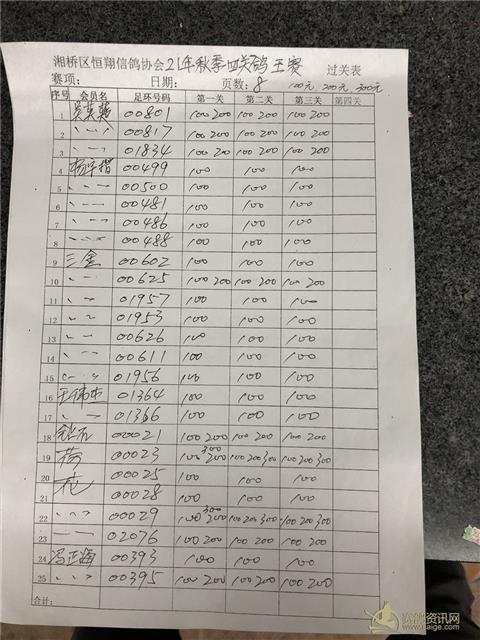 湘桥区恒翔信鸽协会21年秋季四关鸽王赛 过关表
赛项: 日期: 页数:8 100元,200元,300元
序号 会员名 足环号码 第一关 第二关 第三关 第四关
1 00801 100 200 100 200 100 200
2 〃 00817 100 200 100 200 100 200
3 〃 01834 100 200 100 200 100 200
4 00499 100 100 100
5 〃 00500 100 100 100
6 〃 00481 100 100 100
7 〃 00486 100 100 100
8 〃 00488 100 100 100
9 三金 00602 100 100 100
10 〃 00625 100 200 100 200 100 200
11 〃 01957 100 100 100
12 〃 01953 100 100 100
13 〃 00626 100 100 100
14 〃 00611 100 100 100
15 〃 01956 100 100 100
16 01364 100 100 100
17 〃 01366 100 100 100
18 钻石 00021 100 200 100 200 100 200
19 荷 00023 100 200 300 100 200 300 100 200 300
20 花 00025 100 100 100
21 00028 100 100 100
22 〃 00029 100 200 300 100 200 300 100 200 300
23 〃 02076 100 200 100 200 100 200
24 冯正海 00393 100 100 100
25 〃 00395 100 200 100 200 100 200
合计: